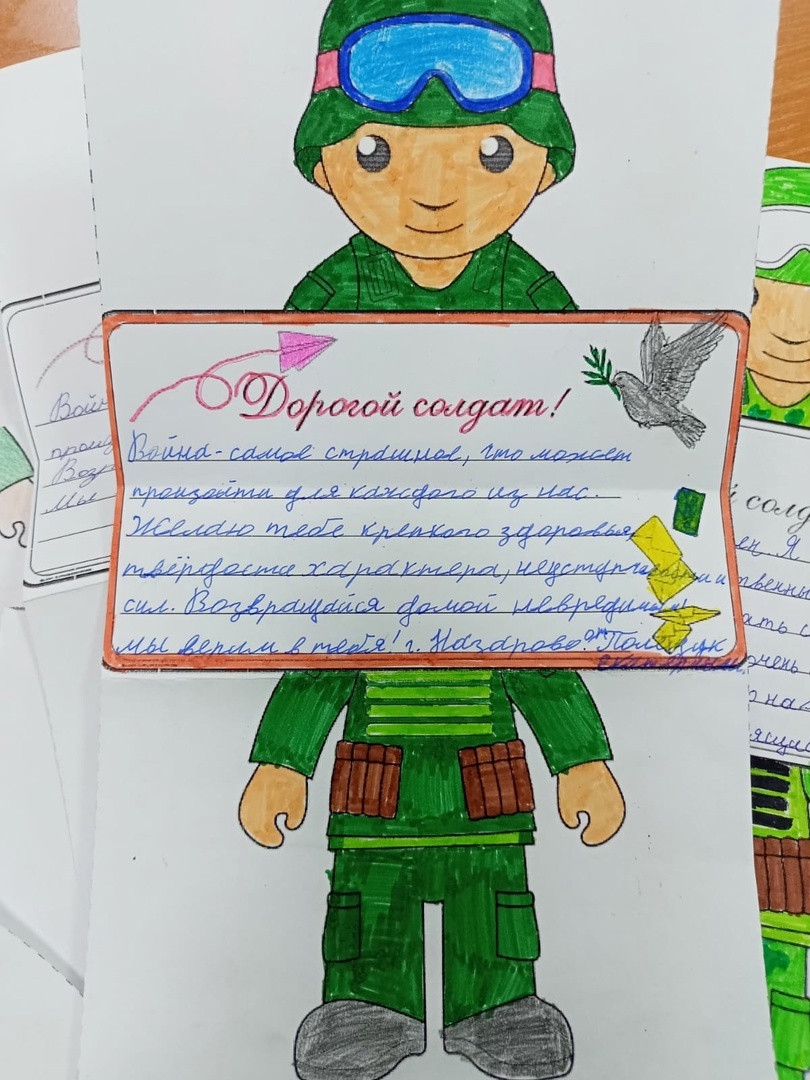 Дорогой солдат!
Война - самое страшное, что может
произойти для каждого из нас.
Желаю тебе крепкого здоровья,
твёрдости характера, неуступчивости и
сил. Возвращайся домой невредимым!
мы верим в тебя! г. Назарово. от
Екатерины
Войн
произ
Возв
Мы
й солд
ен. Я
твенны
ать с
очень